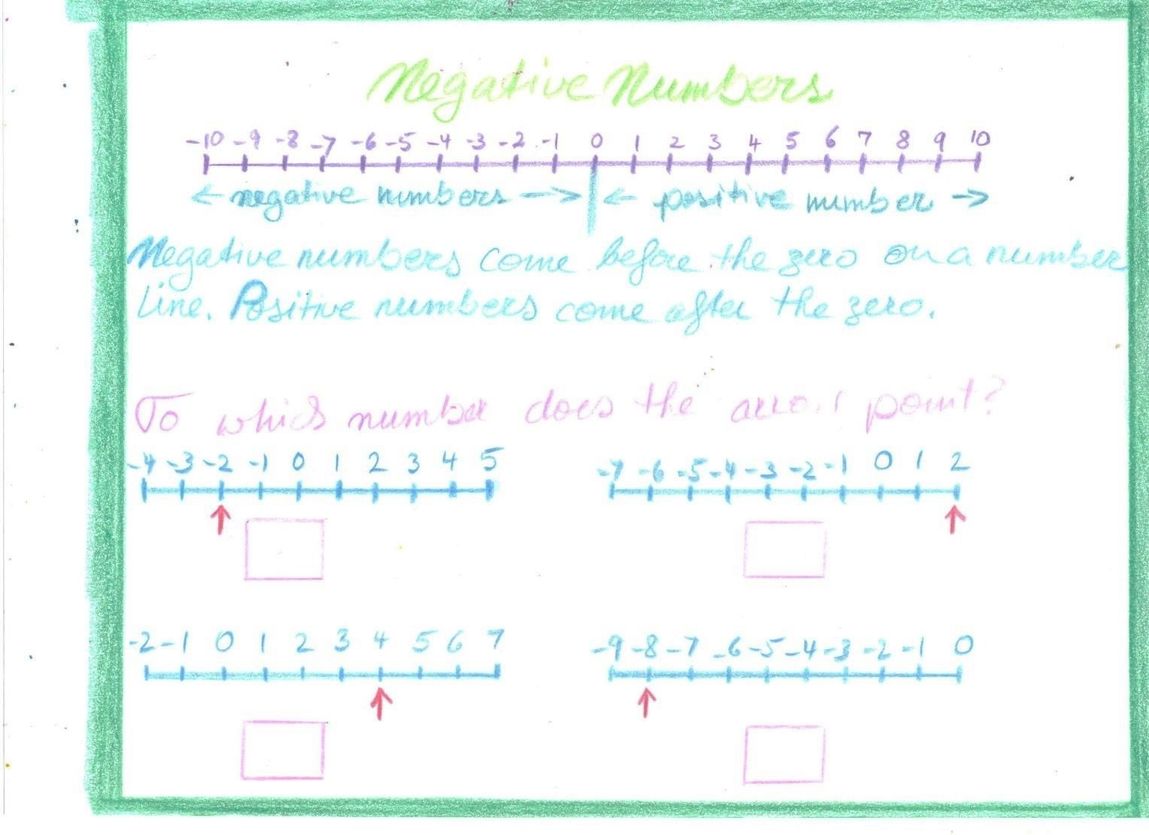 Negative Numbers
-10 -9 -8 -7 -6 -5 -4 -3 -2 -1 0 1 2 3 4 5 6 7 8 9 10
← negative numbers → ← positive number →
Negative numbers come before the zero on a number
line. Positive numbers come after the zero.
To which number does the arrow point?
-4 -3 -2 -1 0 1 2 3 4 5
-7 -6 -5 -4 -3 -2 -1 0 1 2
-2 -1 0 1 2 3 4 5 6 7
-9 -8 -7 -6 -5 -4 -3 -2 -1 0